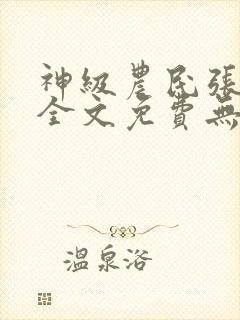 神級農民張
全文免費無
溫泉洛